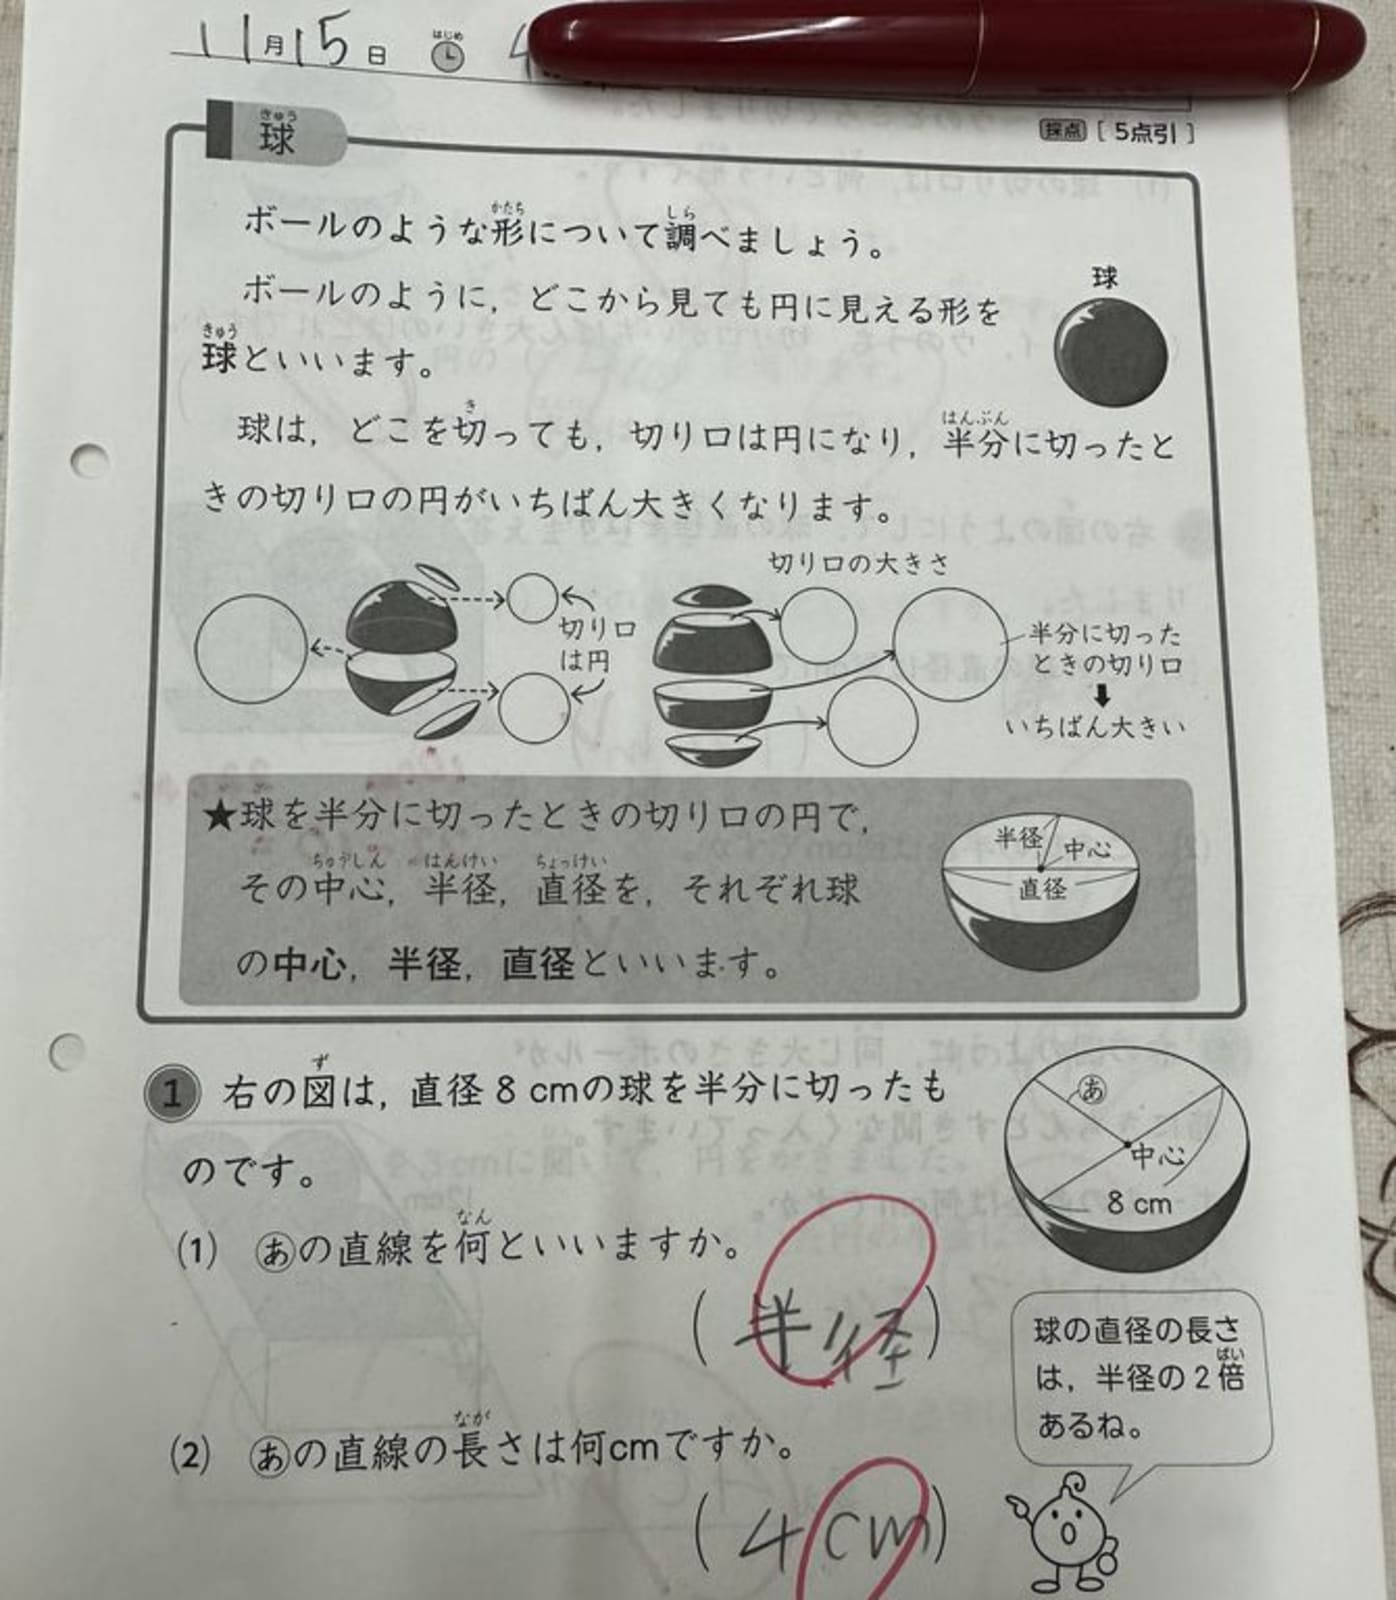 11月15日 はじめ 4
球 きゅう
採点 [5点引]
ボールのような形について調べましょう。
ボールのように，どこから見ても円に見える形を
球といいます。
球
球は，どこを切っても，切り口は円になり，半分に切ったと
きの切り口の円がいちばん大きくなります。
切り口
は円
切り口の大きさ
半分に切った
ときの切り口
いちばん大きい
★球を半分に切ったときの切り口の円で，
その中心，半径，直径を，それぞれ球
の中心，半径，直径といいます。
半径 中心
直径
1 右の図は，直径8cmの球を半分に切ったも
のです。
あ
中心
8cm
(1) あの直線を何といいますか。
(半径)
(2) あの直線の長さは何cmですか。
(4cm)
球の直径の長さ
は，半径の2倍
あるね。